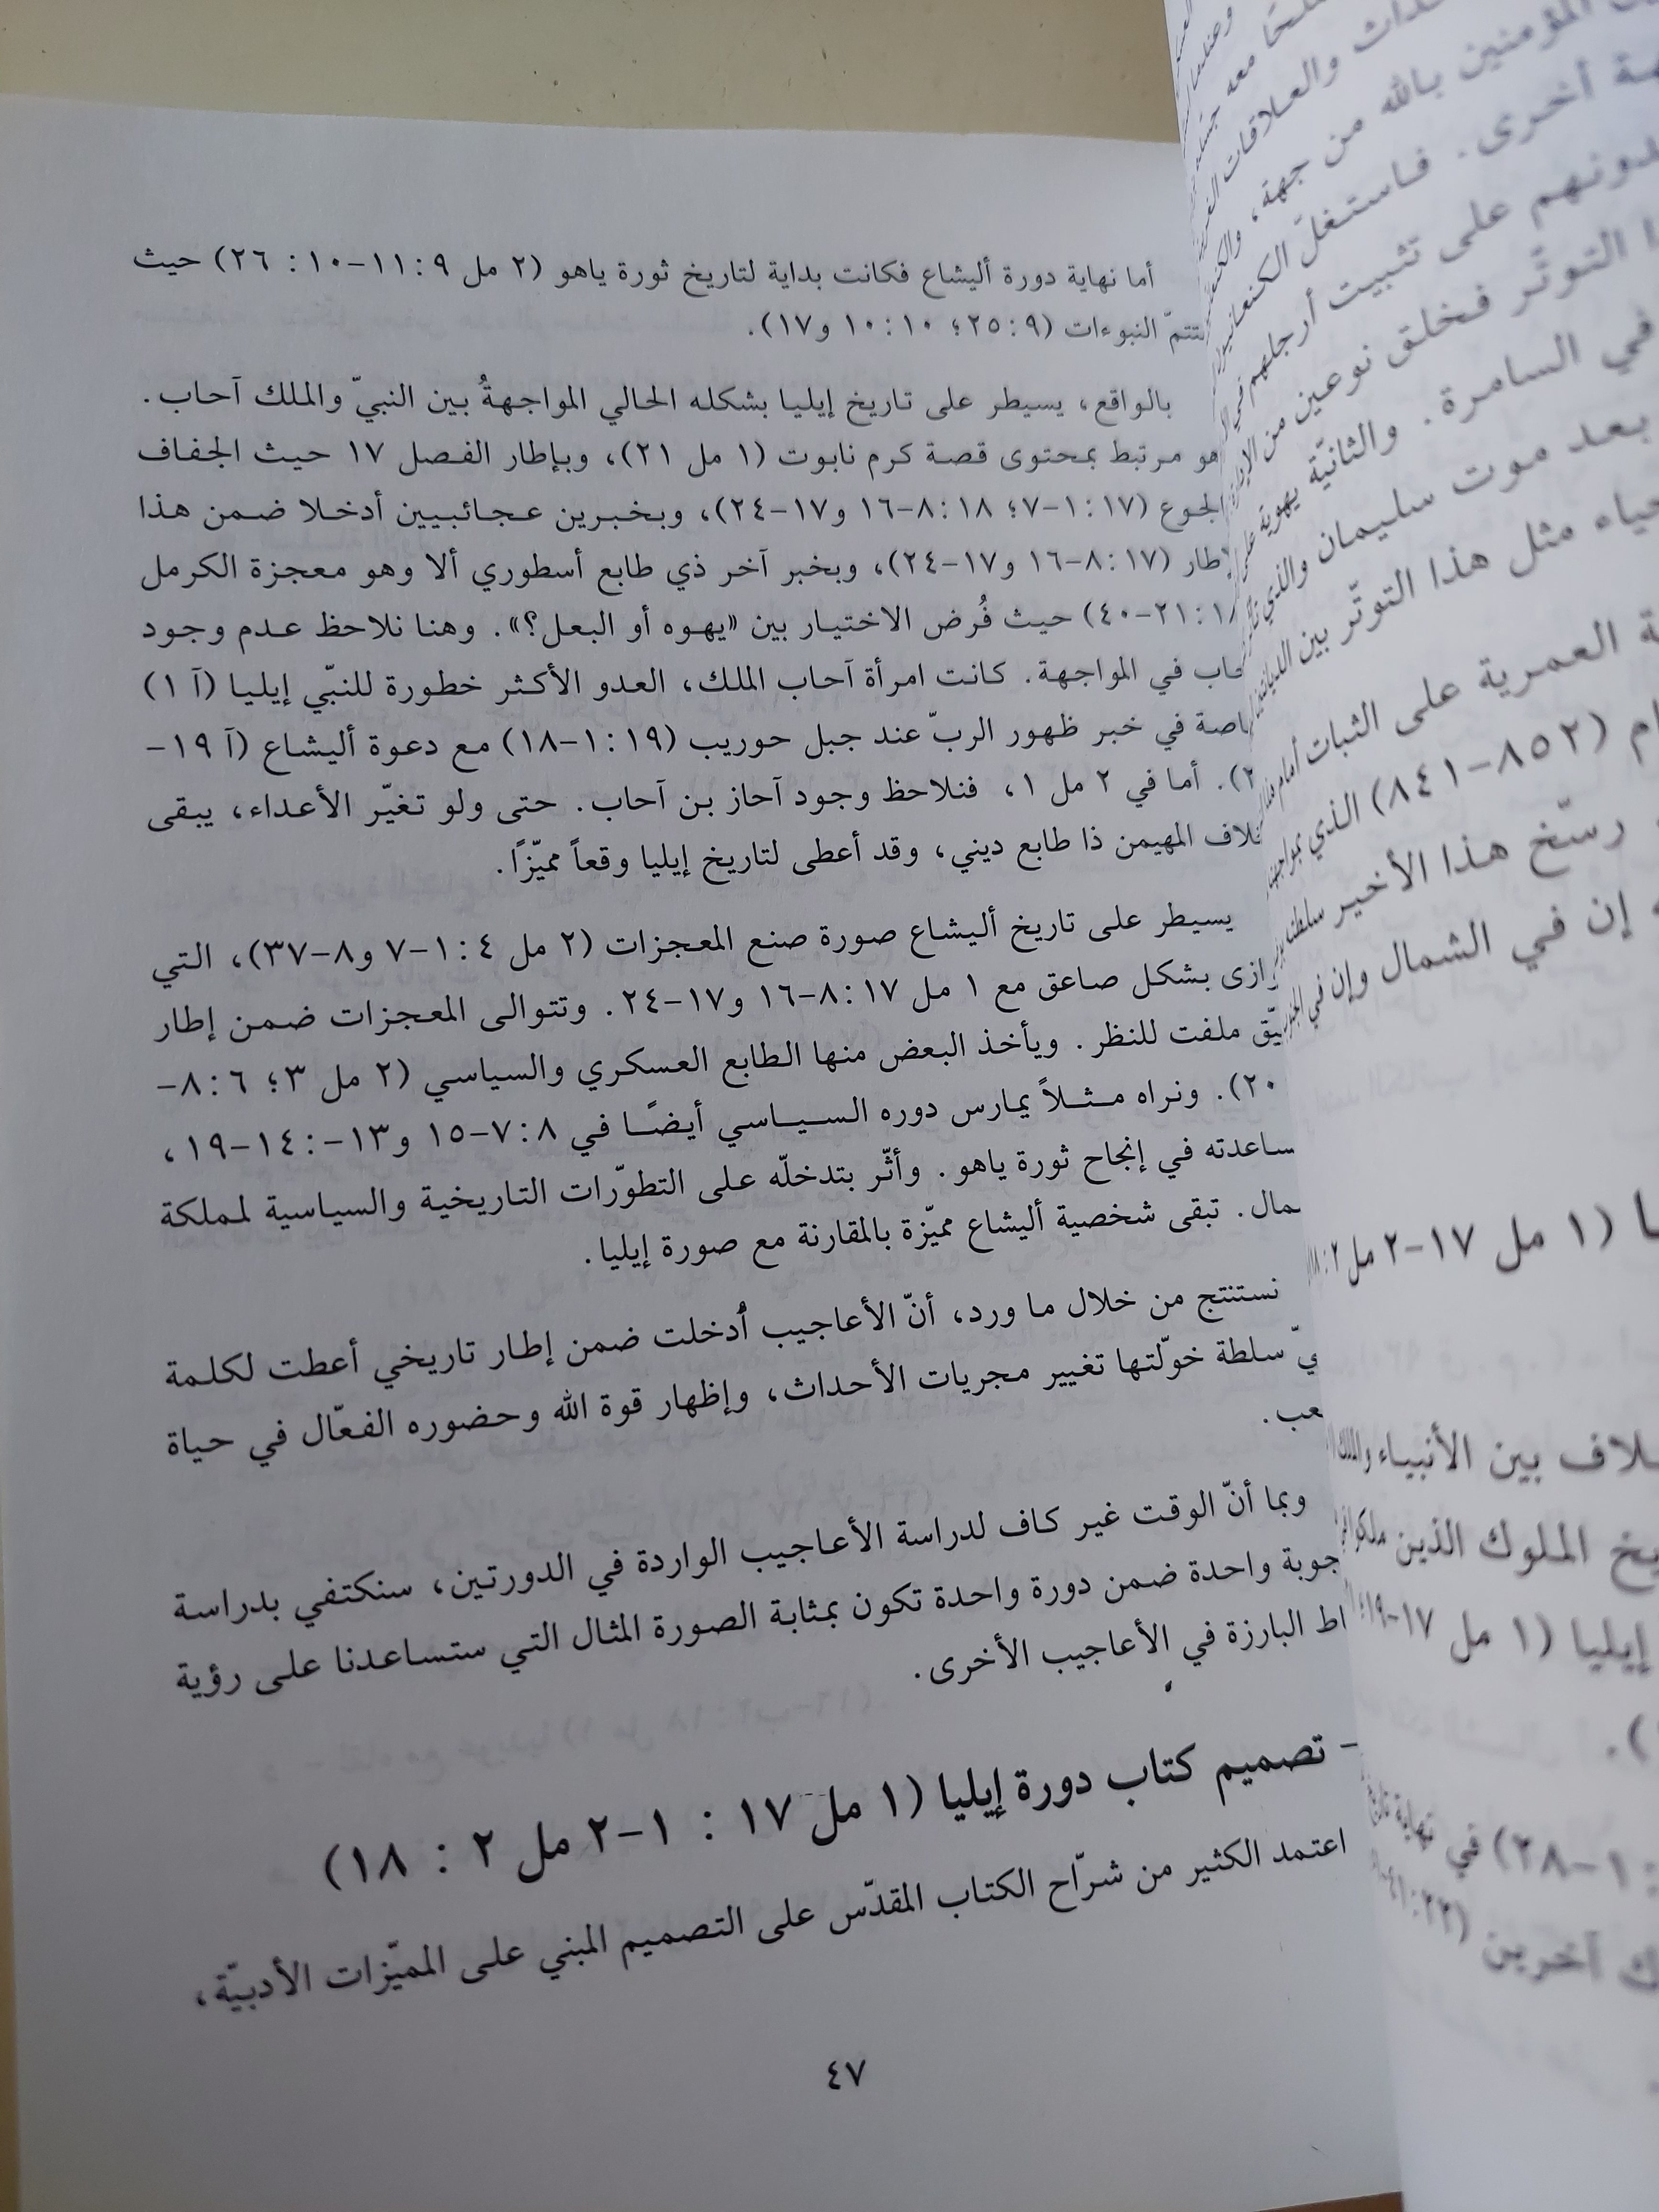 أما نهاية دورة أليشاع فكانت بداية لتاريخ ثورة ياهو (٢ مل ٩ :١١-١٠ : ٢٦) حيث
تتمّ النبوءات (٩ :٢٥؛ ١٠ :١٠ و١٧).
بالواقع، يسيطر على تاريخ إيليا بشكله الحالي المواجهةُ بين النبيّ والملك آحاب.
هو مرتبط بمحتوى قصة كرم نابوت (١ مل ٢١)، وبإطار الفصل ١٧ حيث الجفاف
(١٧ :١-٧؛ ١٨ :٨-١٦ و١٧-٢٤)، وبخبرين عجائبيين أدخلا ضمن هذا
(١٧ :٨-١٦ و١٧-٢٤)، وبخبر آخر ذي طابع أسطوري ألا وهو معجزة الكرمل
:٢١-٤٠) حيث فُرض الاختيار بين «يهوه أو البعل؟». وهنا نلاحظ عدم وجود
في المواجهة. كانت امرأة آحاب الملك، العدو الأكثر خطورة للنبّي إيليا (آ ١)
في خبر ظهور الربّ عند جبل حوريب (١٩ :١-١٨) مع دعوة أليشاع (آ ١٩-
). أما في ٢ مل ١، فنلاحظ وجود آحاز بن آحاب. حتى ولو تغيّر الأعداء، يبقى
المهيمن ذا طابع ديني، وقد أعطى لتاريخ إيليا وقعاً مميّزاً.
يسيطر على تاريخ أليشاع صورة صنع المعجزات (٢ مل ٤ :١-٧ و٨-٣٧)، التي
بشكل صاعق مع ١ مل ١٧ :٨-١٦ و١٧-٢٤. وتتوالى المعجزات ضمن إطار
ملفت للنظر. ويأخذ البعض منها الطابع العسكري والسياسي (٢ مل ٣؛ ٦ :٨-
٢٠). ونراه مثلاً يمارس دوره السياسي أيضًا في ٨ :٧-١٥ و١٣-:١٤-١٩،
في إنجاح ثورة ياهو. وأثّر بتدخلّه على التطوّرات التاريخية والسياسية لمملكة
تبقى شخصية أليشاع مميّزة بالمقارنة مع صورة إيليا.
نستنتج من خلال ما ورد، أنّ الأعاجيب أُدخلت ضمن إطار تاريخي أعطت لكلمة
سلطة خوّلتها تغيير مجريات الأحداث، وإظهار قوة الله وحضوره الفعّال في حياة
وبما أنّ الوقت غير كاف لدراسة الأعاجيب الواردة في الدورتين، سنكتفي بدراسة
واحدة ضمن دورة واحدة تكون بمثابة الصورة المثال التي ستساعدنا على رؤية
البارزة في الأعاجيب الأخرى.
- تصميم كتاب دورة إيليا (١ مل ١٧ : ١-٢ مل ٢ : ١٨)
اعتمد الكثير من شرّاح الكتاب المقدّس على التصميم المبني على المميّزات الأدبيّة،
٤٧
والعلاقات
المؤمنين بالله من جهة،
أخرى. فاستغلّ الكنعانيون
على تثبيت أرجلهم في
التوتّر فخلق نوعين من
في السامرة. والثانيّة يهوية
بعد موت سليمان والذي
مثل هذا التوتّر بين
العمرية على الثبات أمام
(٨٥٢-٨٤١) الذي
رسّخ هذا الأخير
إن في الشمال وإن في
(١ مل ١٧-٢ مل ٢
بين الأنبياء
الملوك الذين ملكوا
إيليا (١ مل ١٧-١٩
١-٢٨) في نهاية
آخرين (٢٢